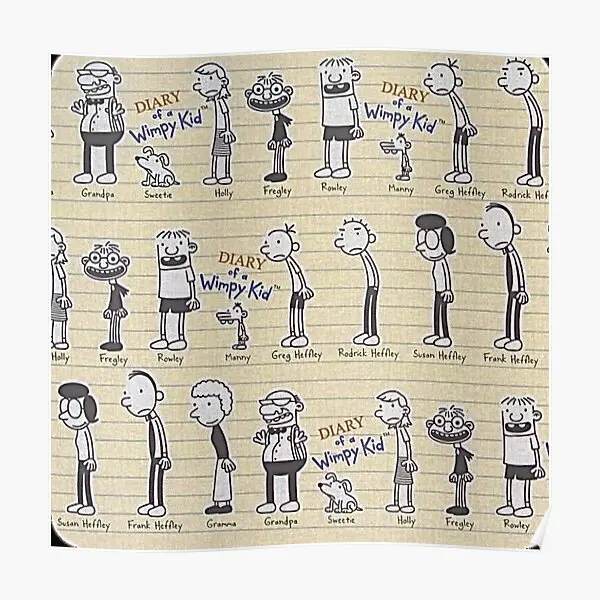 DIARY
of a
Wimpy Kid™
DIARY
of a
Wimpy Kid™
Grandpa Sweetie Holly Fregley Rowley Manny Greg Heffley Rodrick Hef
DIARY
of a
Wimpy Kid™
Holly Fregley Rowley Manny Greg Heffley Rodrick Heffley Susan Heffley Frank Heffley
DIARY
of a
Wimpy Kid™
Susan Heffley Frank Heffley Gramma Grandpa Sweetie Holly Fregley Rowley